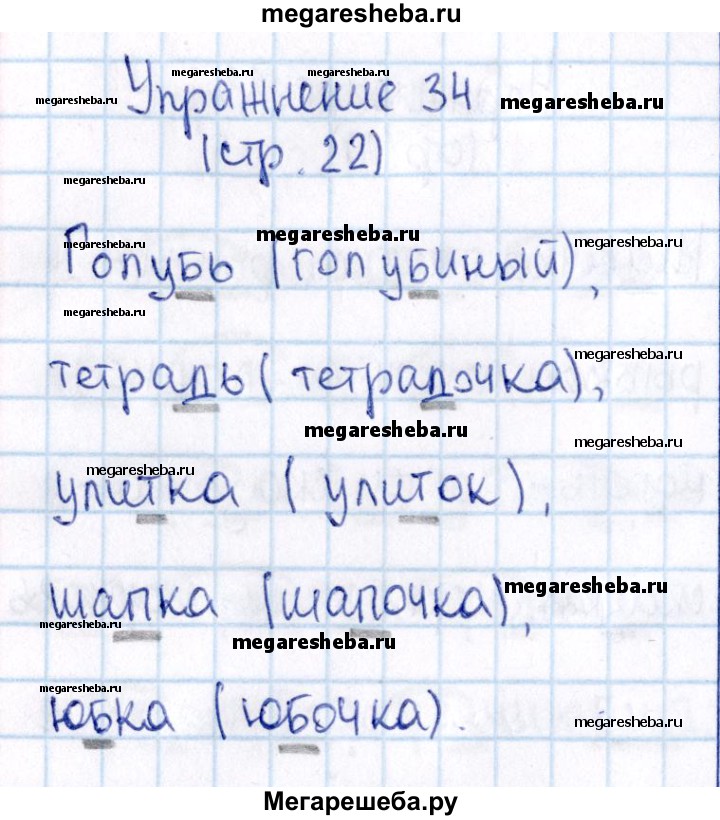 megaresheba.ru
megaresheba.ru megaresheba.ru
megaresheba.ru megaresheba.ru
Упражнение 34
(стр. 22)
megaresheba.ru
megaresheba.ru megaresheba.ru
Голубь (голубиный),
megaresheba.ru
megaresheba.ru
тетрадь (тетрадочка),
megaresheba.ru
megaresheba.ru
megaresheba.ru
улитка (улиток),
megaresheba.ru
шапка (шапочка),
megaresheba.ru
megaresheba.ru
megaresheba.ru
юбка (юбочка).
megaresheba.ru
Мегарешеба.ру